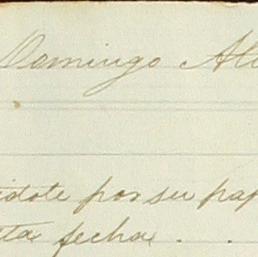 Domingo Al
idote por su pap
ta fecha . .